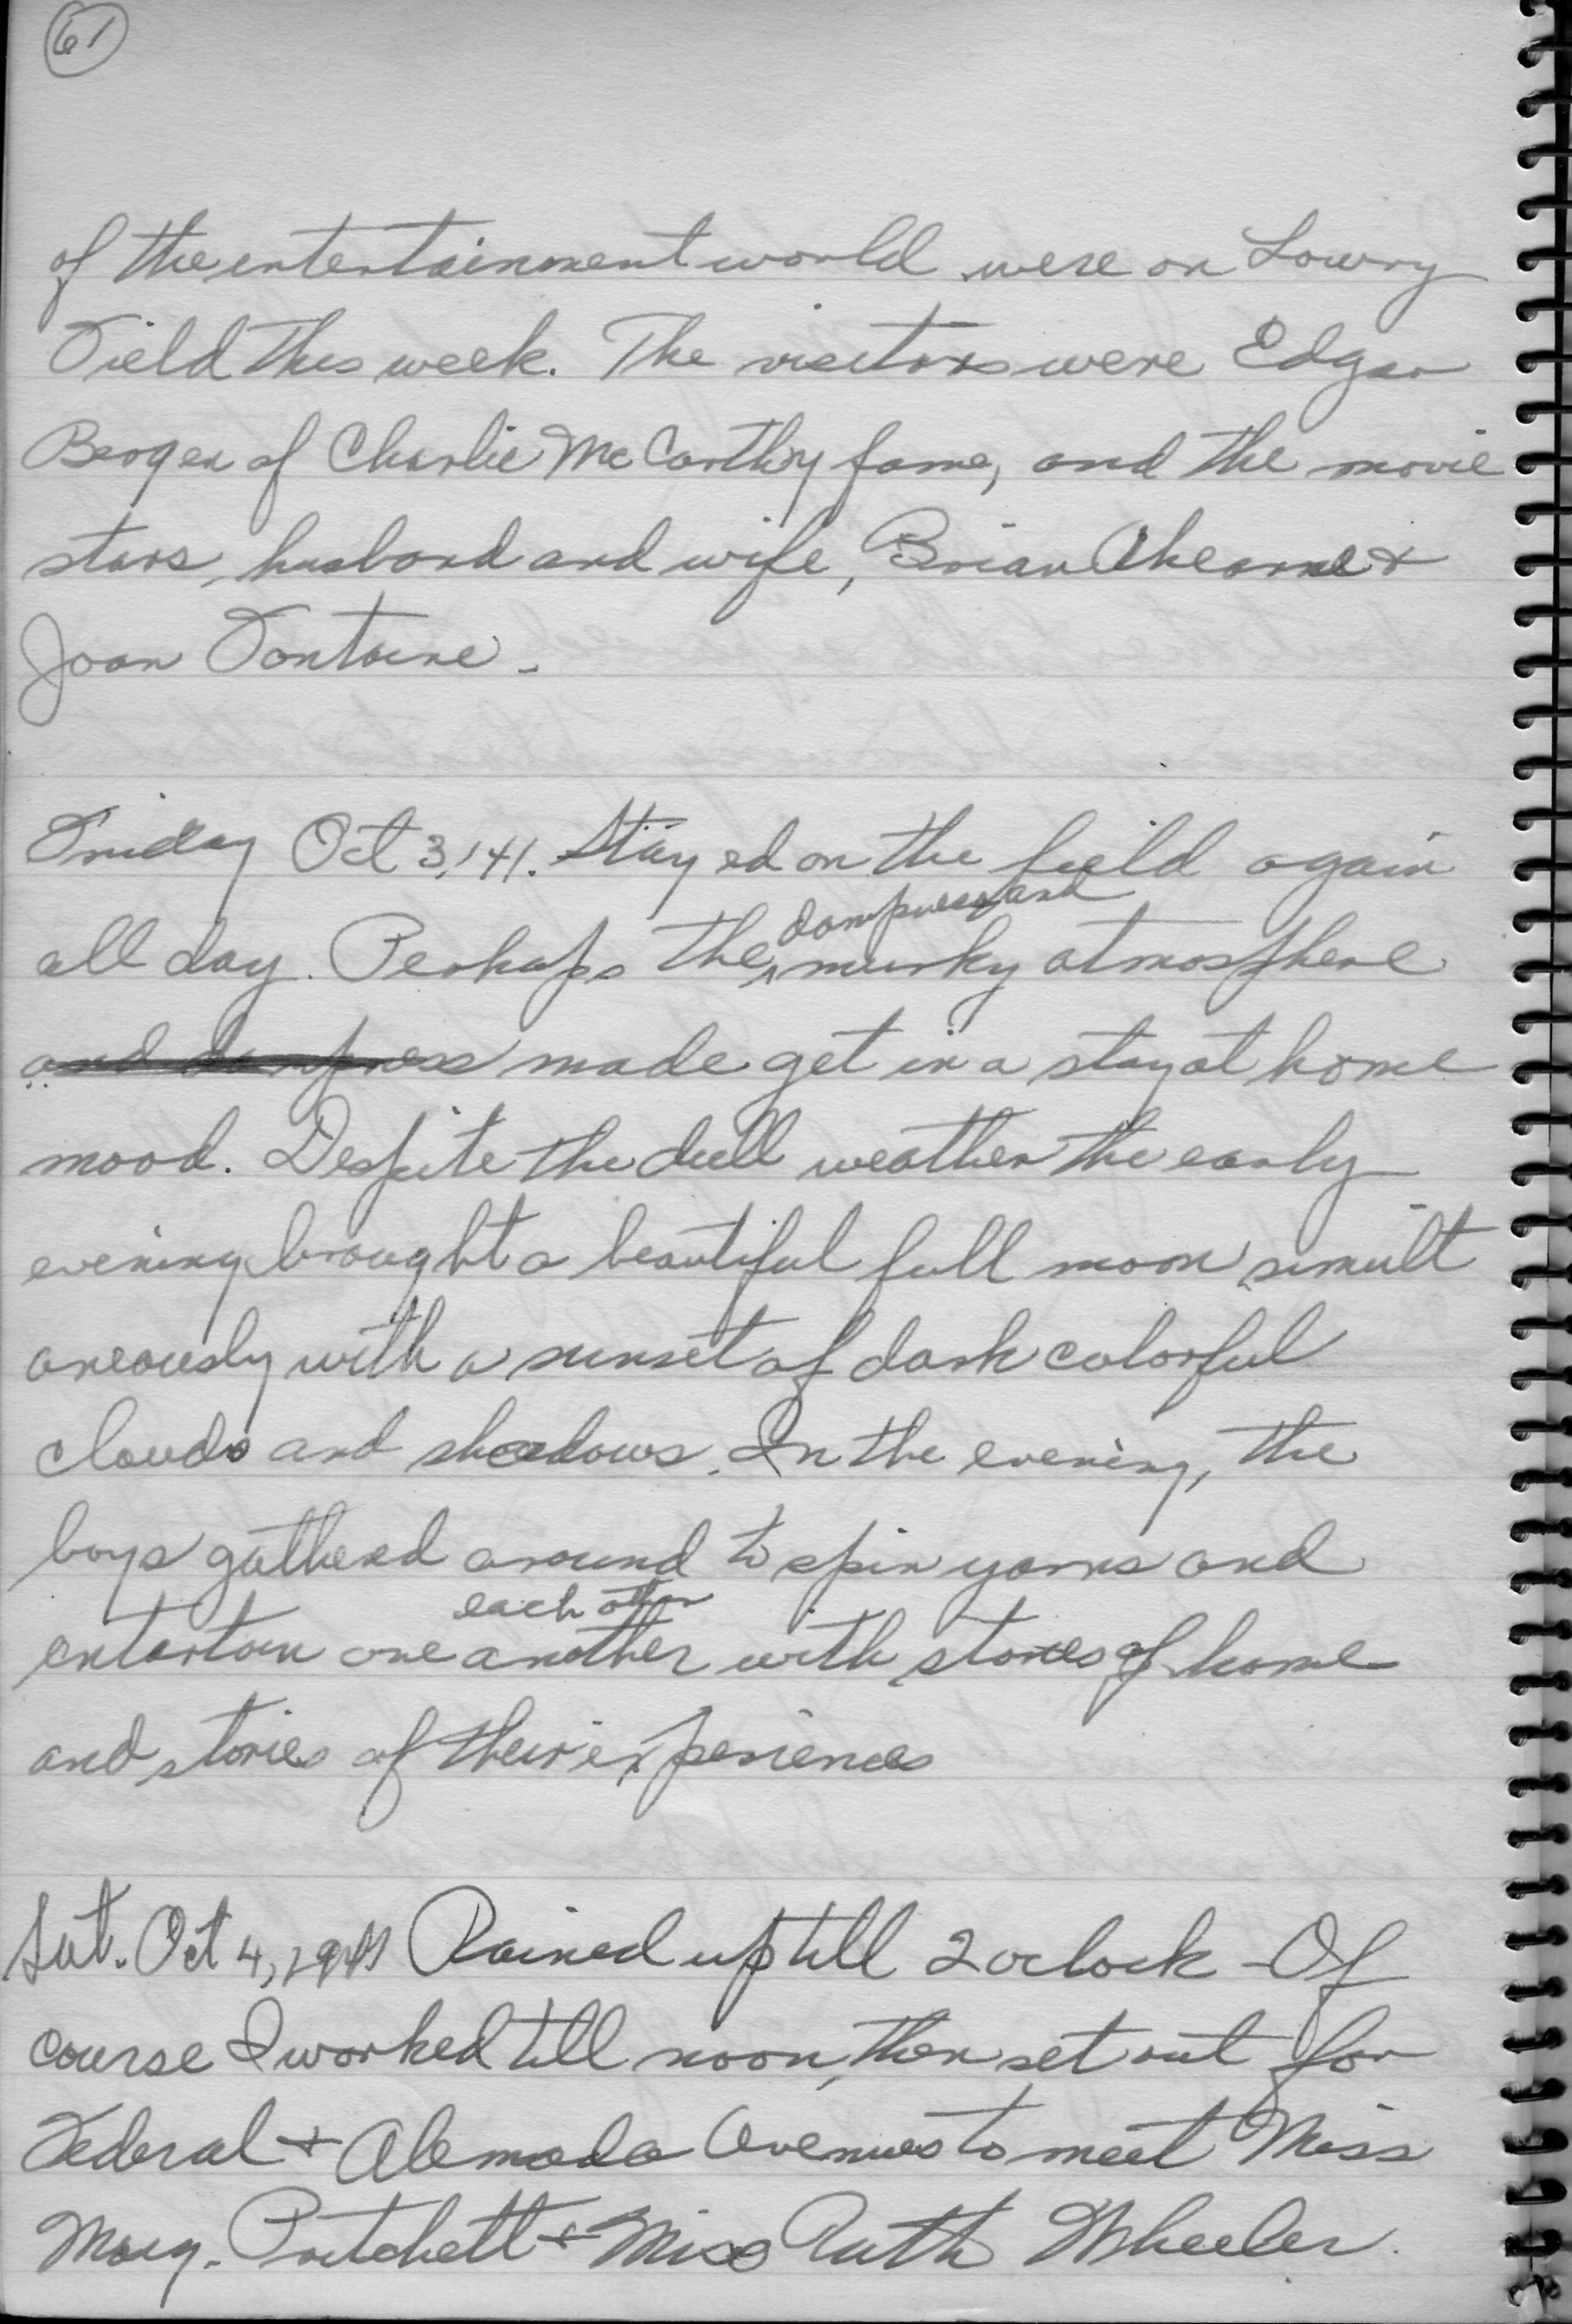 61
of the entertainment world were on Lowry
Field this week. The visitors were Edgar
Bergen of Charlie McCarthy fame, and the movie
stars, husband and wife, Brian Ahearne &
Joan Fontaine.
Friday Oct 3, '41. Stayed on the field again
dampness and
all day. Perhaps the murky atmosphere
and dampness made get in a stay at home
mood. Despite the dull weather the early
evening brought a beautiful full moon, simult
aneously with a sunset of dark colorful
clouds and shadows. In the evening, the
boys gatherd around to spin yarns and
each other
entertain one another with stories of home
and stories of their experiences
Sat. Oct 4, 1941 Rained up till 2 oclock - Of
course I worked till noon, then set out for
Federal & Alemeda Avenues to meet Miss
Mary. Pritchett & Miss Ruth Wheeler.